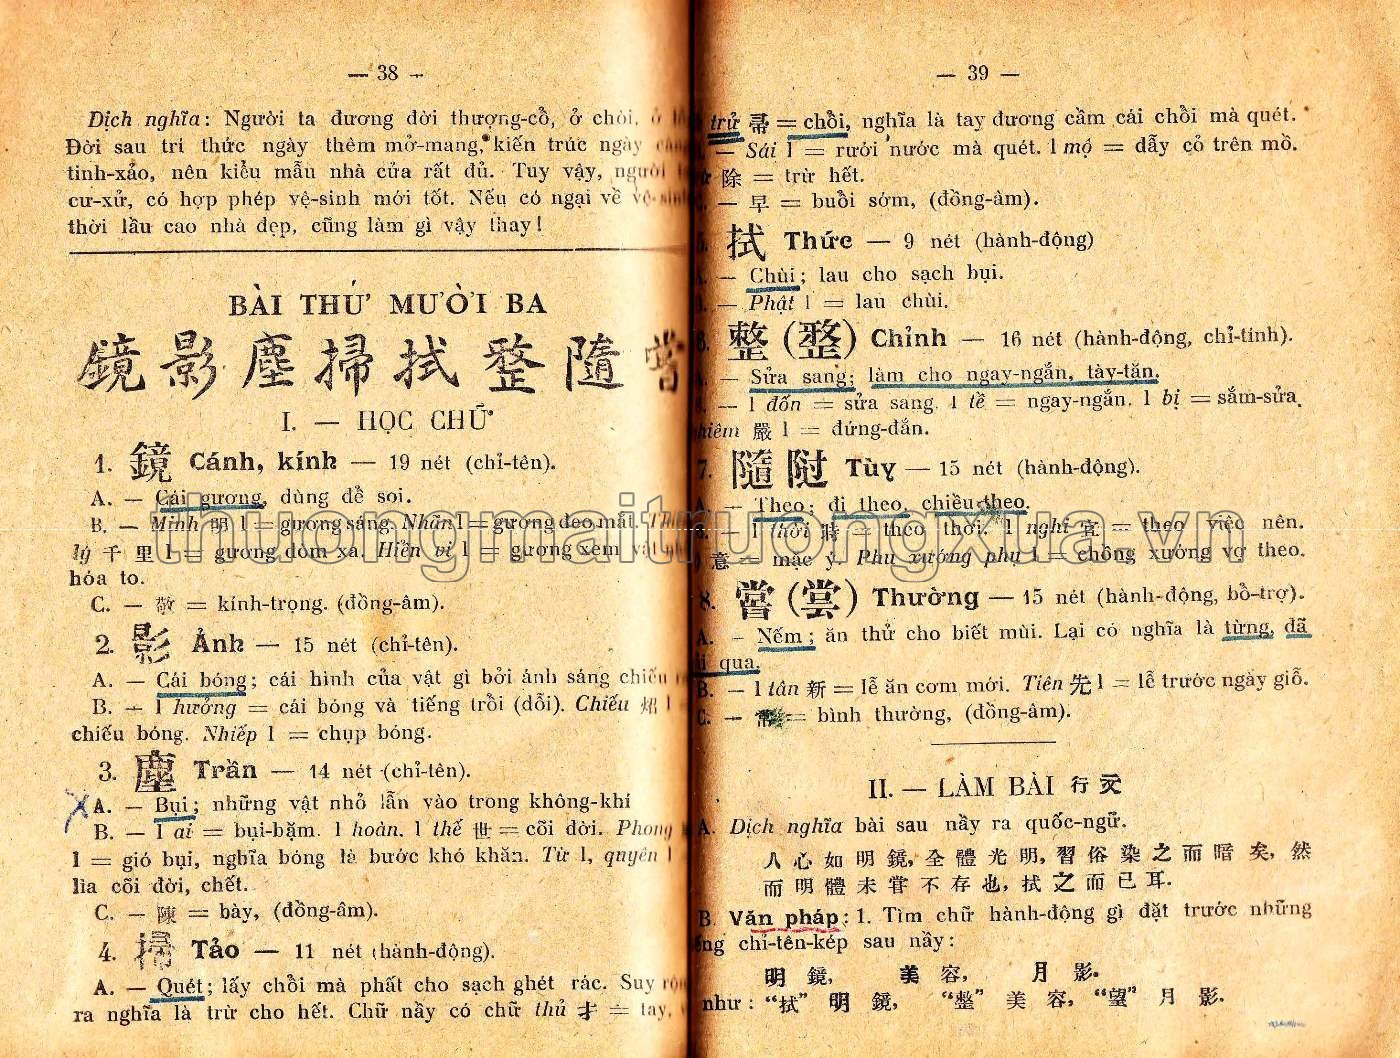 — 38 —
Dịch nghĩa: Người ta đương đời thượng-cổ, ở chòi, ở
Đời sau tri thức ngày thêm mở-mang, kiến trúc ngày càng
tinh-xảo, nên kiểu mẫu nhà cửa rất đủ. Tuy vậy, người
cư-xử, có hợp phép vệ-sinh mới tốt. Nếu có ngại về vệ-sinh
thời lầu cao nhà đẹp, cũng làm gì vậy thay!
BÀI THỨ MƯỜI BA
鏡 影 塵 掃 拭 整 隨 嘗
I. — HỌC CHỮ
1. 鏡 Cánh, kính — 19 nét (chỉ-tên).
A. — Cái gương, dùng để soi.
B. — Minh 明 l = gương sáng. Nhãn l = gương đeo mắt.
lý 千 里 l = gương dòm xa. Hiển vi l = gương xem vật
hóa to.
C. — 敬 = kính-trọng. (đồng-âm).
2. 影 Ảnh — 15 nét (chỉ-tên).
A. — Cái bóng; cái hình của vật gì bởi ánh sáng chiếu
B. — l hưởng = cái bóng và tiếng trồi (dỗi). Chiếu 炤 l
chiếu bóng. Nhiếp l = chụp bóng.
3. 塵 Trần — 14 nét (chỉ-tên).
A. — Bụi; những vật nhỏ lẫn vào trong không-khí
B. — l ai = bụi-bặm. l hoàn. l thế 世 = cõi đời. Phong
l = gió bụi, nghĩa bóng là bước khó khăn. Từ l, quyên l
lìa cõi đời, chết.
C. — 陳 = bày, (đồng-âm).
4. 掃 Tảo — 11 nét (hành-động).
A. — Quét; lấy chổi mà phất cho sạch ghét rác. Suy rộng
ra nghĩa là trừ cho hết. Chữ nầy có chữ thủ 扌 = tay,
— 39 —
trử 帚 = chổi, nghĩa là tay đương cầm cái chổi mà quét.
— Sái l = rưới nước mà quét. l mộ = dẫy cỏ trên mồ.
除 = trừ hết.
— 早 = buổi sớm, (đồng-âm).
拭 Thức — 9 nét (hành-động)
— Chùi; lau cho sạch bụi.
— Phật l = lau chùi.
整 (整) Chỉnh — 16 nét (hành-động, chỉ-tính).
— Sửa sang; làm cho ngay-ngắn, tày-tặn.
— l đốn = sửa sang. l tề = ngay-ngắn. l bị = sắm-sửa.
嚴 l = đứng-đắn.
7. 隨 Tùy — 15 nét (hành-động).
— Theo; đi theo, chiều theo.
— l thời 時 = theo thời. l nghi 宜 = theo việc nên.
意 = mặc ý. Phu xướng phụ l = chồng xướng vợ theo.
8. 嘗 (甞) Thường — 15 nét (hành-động, bổ-trợ).
A. — Nếm; ăn thử cho biết mùi. Lại có nghĩa là từng, đã
qua.
B. — l tân 新 = lễ ăn cơm mới. Tiên 先 l = lễ trước ngày giỗ.
C. — 常 = bình thường, (đồng-âm).
II. — LÀM BÀI 行 文
A. Dịch nghĩa bài sau nầy ra quốc-ngữ.
人 心 如 明 鏡, 全 體 光 明, 習 俗 染 之 而 暗 矣, 然
而 明 體 未 嘗 不 存 也, 拭 之 而 已 耳.
B. Văn pháp: 1. Tìm chữ hành-động gì đặt trước những
chỉ-tên-kép sau nầy:
明 鏡, 美 容, 月 影.
như: “拭” 明 鏡, “整” 美 容, “望” 月 影.
thuongmaitruongxua.vn